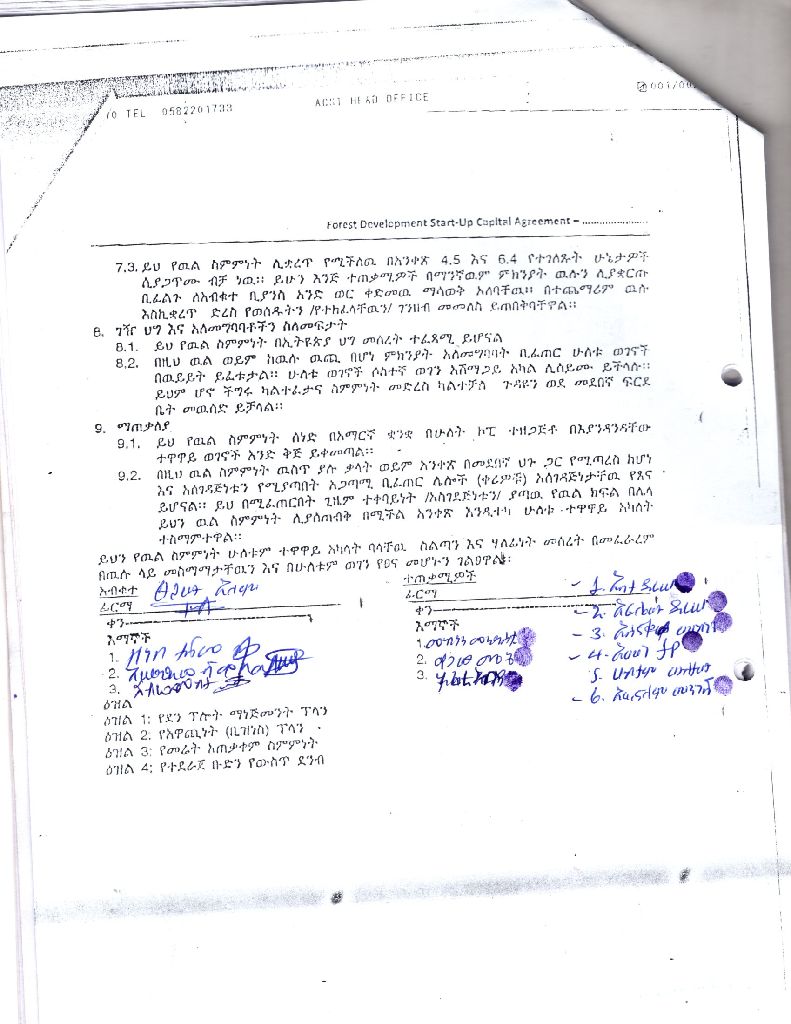 /0 TEL 0582201733 ACSI HEAD OFFICE 001/00
Forest Development Start-Up Capital Agreement – ........................
7.3. ይህ የዉል ስምምነት ሊቋረጥ የሚችለዉ በአንቀጽ 4.5 እና 6.4 የተገለጹት ሁኔታዎች
ሲያጋጥሙ ብቻ ነዉ፡፡ ይሁን እንጅ ተጠቃሚዎች በማንኛዉም ምክንያት ዉሉን ሊያቋርጡ
ቢፈልጉ ለአብቁተ ቢያንስ አንድ ወር ቀድመዉ ማሳወቅ አለባቸዉ፡፡ በተጨማሪም ዉሉ
እስኪቋረጥ ድረስ የወሰዱትን /የተከፈላቸዉን/ ገንዘብ መመለስ ይጠበቅባቸዋል፡፡
8. ገዥ ህግ እና አለመግባባቶችን ስለመፍታት
8.1. ይህ የዉል ስምምነት በኢትዮጵያ ህግ መሰረት ተፈጻሚ ይሆናል
8.2. በዚህ ዉል ወይም ከዉሉ ዉጪ በሆነ ምክንያት አለመግባባት ቢፈጠር ሁለቱ ወገኖች
በዉይይት ይፈቱታል፡፡ ሁለቱ ወገኖች ሶስተኛ ወገን አሸማጋይ አካል ሊሰይሙ ይችላሉ፡፡
ይህም ሆኖ ችግሩ ካልተፈታና ስምምነት መድረስ ካልተቻለ ጉዳዩን ወደ መደበኛ ፍርድ
ቤት መዉሰድ ይቻላል፡፡
9. ማጠቃለያ
9.1. ይህ የዉል ስምምነት ሰነድ በአማርኛ ቋንቋ በሁለት ኮፒ ተዘጋጅቶ በእያንዳንዳቸው
ተዋዋይ ወገኖች አንድ ቅጅ ይቀመጣል፡፡
9.2. በዚህ ዉል ስምምነት ዉስጥ ያሉ ቃላት ወይም አንቀጽ በመደበኛ ህጉ ጋር የሚጣረስ ከሆነ
እና አስገዳጅነቱን የሚያጣበት አጋጣሚ ቢፈጠር ሌሎች (ቀሪዎቹ) አስገዳጅነታቸዉ የጸና
ይሆናል፡፡ ይህ በሚፈጠርበት ጊዜም ተቀባይነት /አስገደጅነቱን/ ያጣዉ የዉል ክፍል በሌላ
ይህን ዉል ስምምነት ሊያስጠብቅ በሚችል አንቀጽ እንዲተካ ሁለቱ ተዋዋይ አካላት
ተስማምተዋል፡፡
ይህን የዉል ስምምነት ሁለቱም ተዋዋይ አካላት ባላቸዉ ስልጣን እና ሃላፊነት መሰረት በመፈራረም
በዉሉ ላይ መስማማታቸዉን እና በሁለቱም ወገን የፀና መሆኑን ገልፀዋል፡፡
አብቁተ
ፊርማ
ቀን
እማኞች
1.
2.
3.
ተጠቃሚዎች
ፊርማ
ቀን
እማኞች
1.
2.
3.
1.
2.
3.
4.
5.
6.
ዕዝል
ዕዝል 1: የደን ፕሎት ማኔጅመንት ፕላን
ዕዝል 2: የአዋጪነት (ቢዝነስ) ፕላን
ዕዝል 3: የመሬት አጠቃቀም ስምምነት
ዕዝል 4: የተደራጀ ቡድን የውስጥ ደንብ